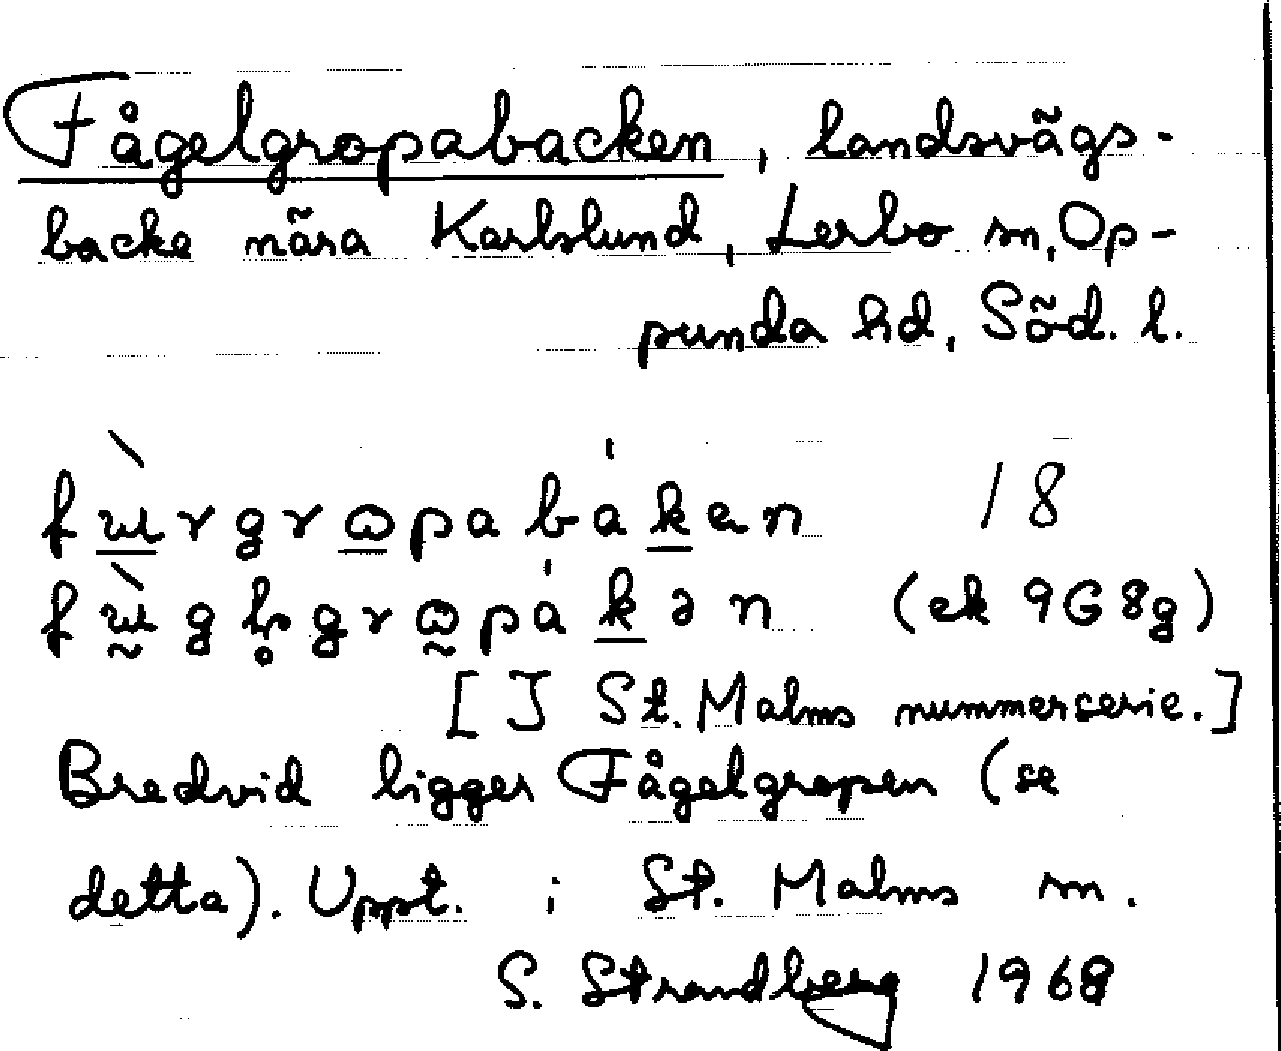 Fågelgropabacken, landsvägs-
backe nära Karlslund, Lerbo sn, Op-
punda hd, Söd. l.
18
(ek 9G8g)
[I St. Malms nummerserie.]
Bredvid ligger Fågelgropen (se
detta). Uppt. i St. Malms sn.
S. Strandberg 1968